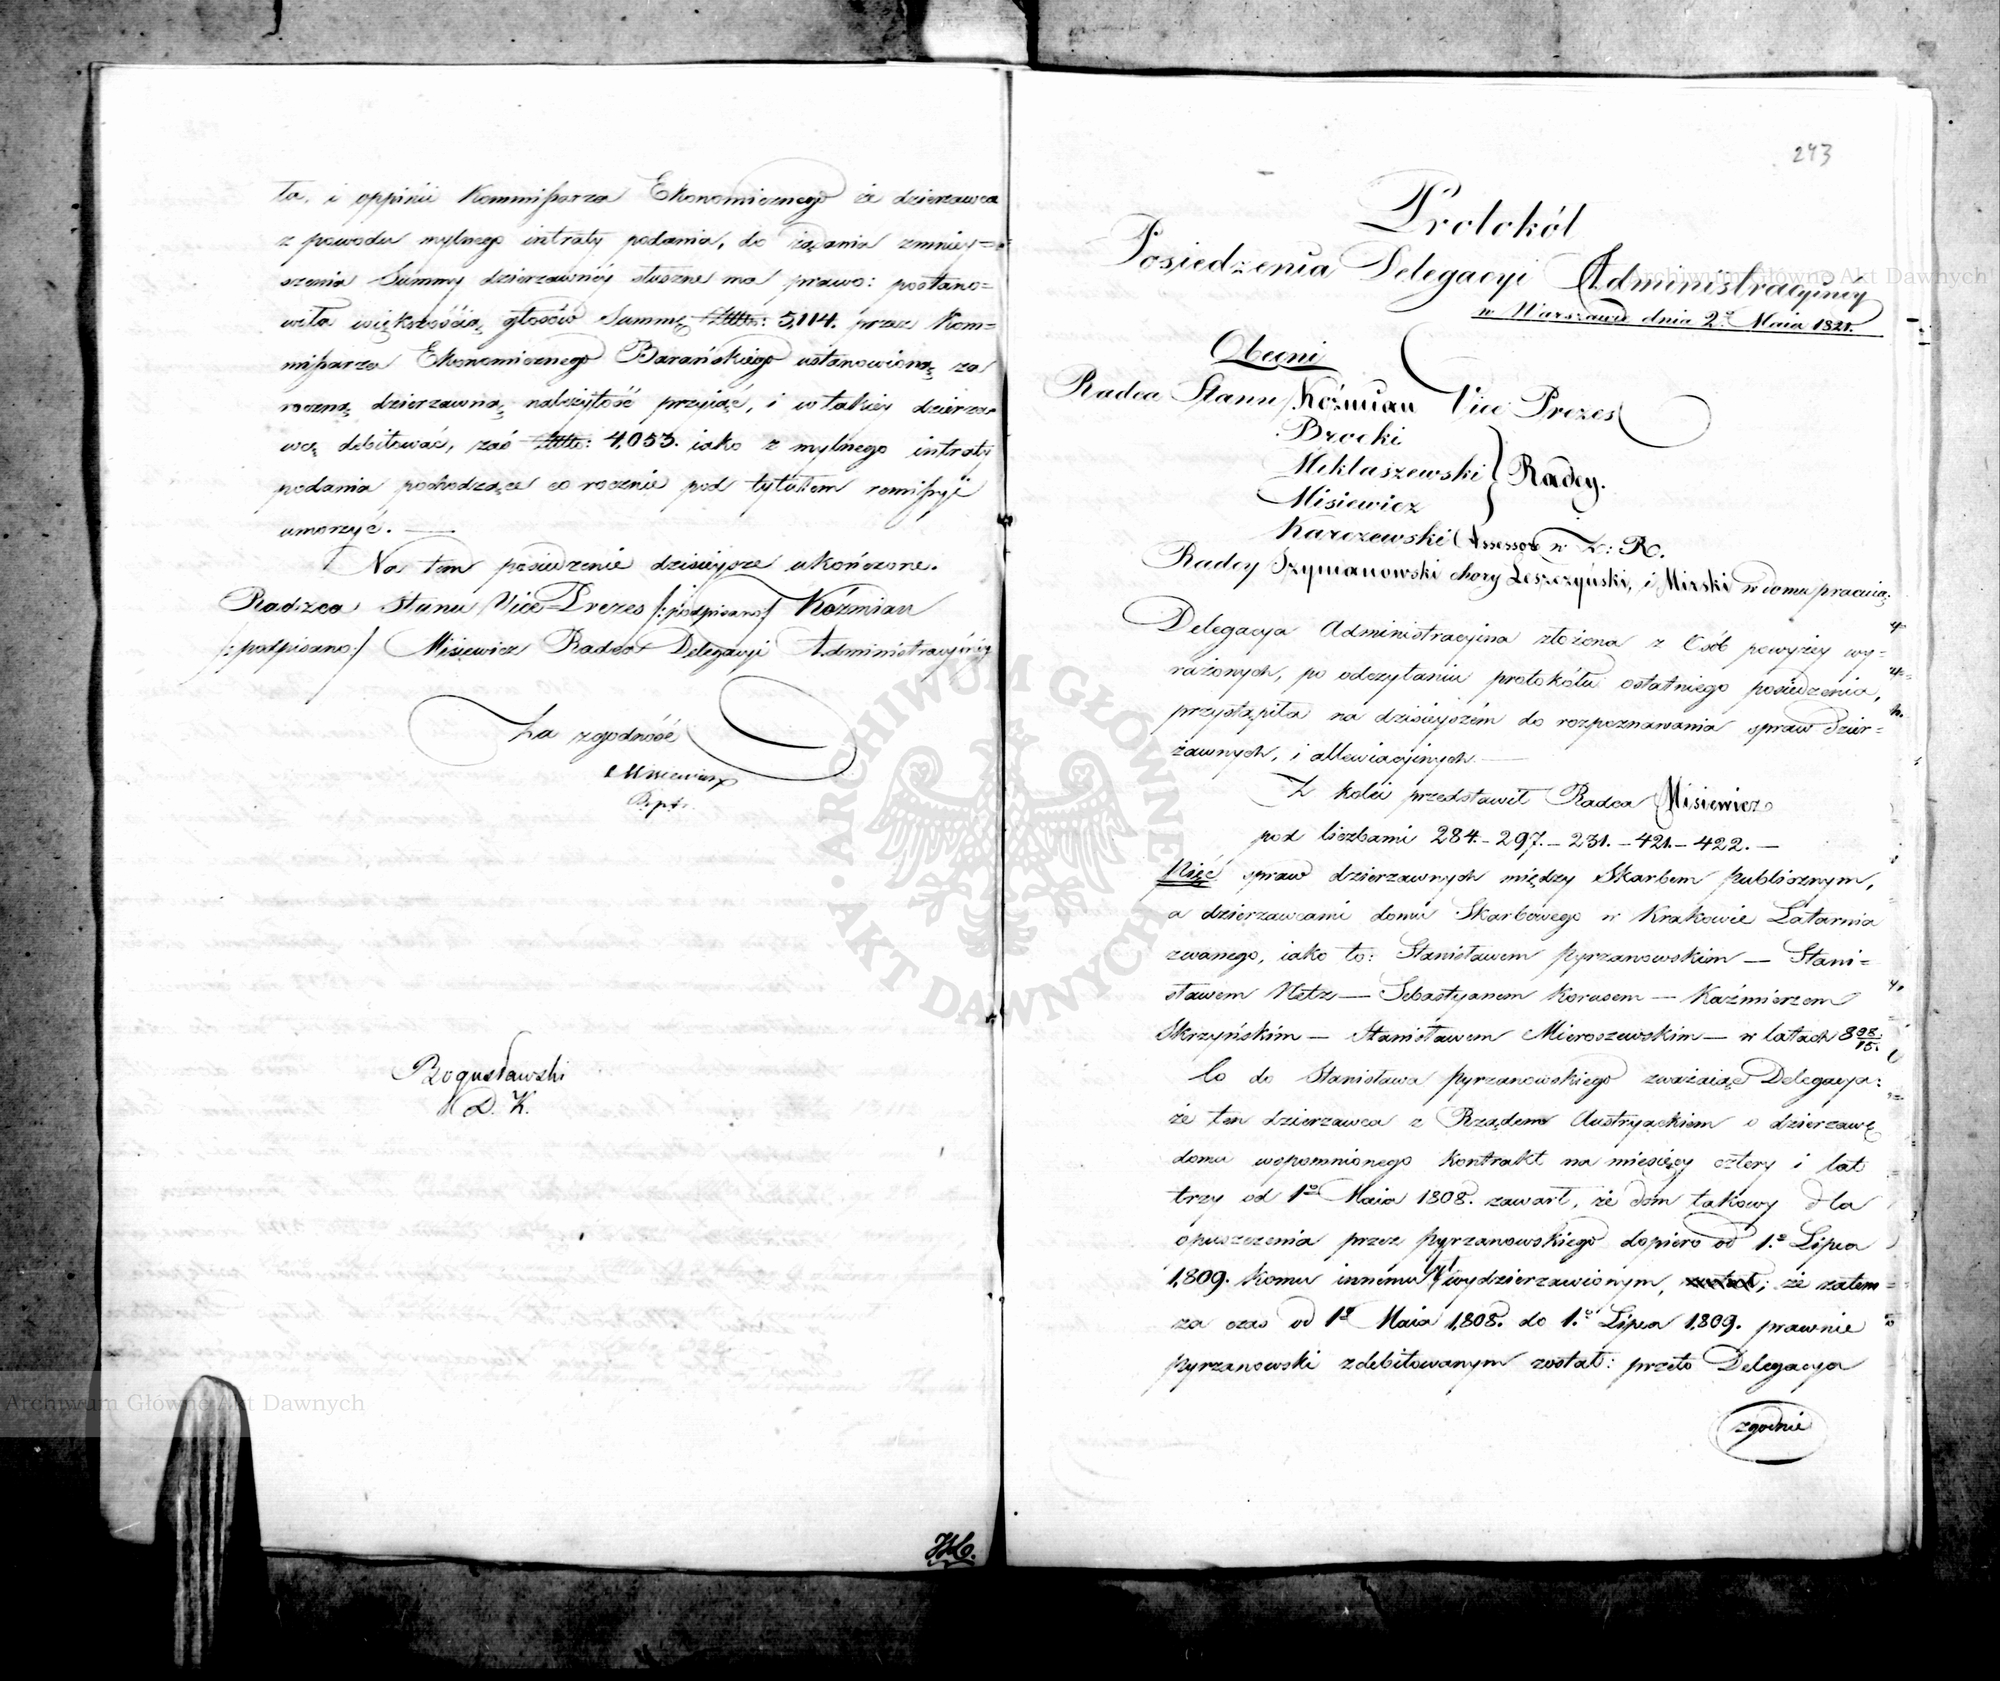 ta, i oppinii Kommissarza Ekonomicznego że dzierzawca
z powodu mylnego intraty podania, do żądania zmniey=
szenia Summy dzierzawnéy słuszne ma prawo: postano=
wiła większością głosów Summę 5,114. przez Kom=
missarza Ekonomicznego Barańskiego ustanowioną za
roczną dzierzawną należytość przyiąć, i w takiéy dzierzaw
wcę debitować, zaś 4,053. iako z mylnego intraty
podania pochodzące co rocznie pod tytułem remissyi
umorzyć. —
Na tem posiedzenie dzisieysze ukończone.
Radzca Stanu Vice-Prezes /:podpisano:/ Koźmian
/:podpisano:/ Misiewicz Radca Delegacyi Administracyinéy
Za zgodność
Misiewicz
Bogusławski
D. K.
243
Protokół
Posiedzenia Delegacyi Administracyinéy
w Warszawie dnia 2º Maia 1821.
Obecni
Radca Stanu Koźmian Vice Prezes
Brocki
Miklaszewski } Radcy.
Misiewicz
Karczewski Assessor w Z: R.
Radcy Szymanowski chory Leszczyński, i Mirski w domu pracuią.
Delegacya Administracyina złożona z Osób powyżéy wy=
rażonych, po odczytaniu protokółu ostatniego posiedzenia,
przystąpiła na dzisieyszém do rozpoznawania spraw dzier=
żawnych, i allewiacyinych. —
Z kolei przedstawił Radca Misiewicz
pod liczbami 284.- 297.- 231.- 421.- 422. —
Pięć spraw dzierzawnych między Skarbem publicznym,
a dzierzawcami domu Skarbowego w Krakowie Latarnia
zwanego, iako to: Stanisławem Pyrzanowskim — Stani=
sławem Netz — Sebastyanem Korusem — Kaźmierzem
Skrzyńskim — Stanisławem Mieroszewskim — w latach 808/15.
Co do Stanisława Pyrzanowskiego zważaiąc Delegacya:
że ten dzierzawca z Rządem Austryackiem o dzierzawę
domu wspomnionego kontrakt na miesięcy cztery i lat
trzy od 1º Maia 1808. zawarł, że dom takowy dla
opuszczenia przez Pyrzanowskiego dopiero od 1.º Lipca
1,809. komu innemu wydzierzawionym, został; że zatem
za czas od 1º Maia 1,808. do 1.º Lipca 1,809. prawnie
Pyrzanowski zdebitowanym został: przeto Delegacya
zgodnie
Archiwum Główne Akt Dawnych
Archiwum Główne Akt Dawnych
· ARCHIWUM GŁÓWNE · AKT DAWNYCH